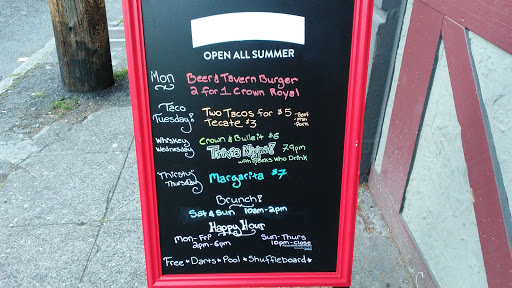 OPEN ALL SUMMER
Mon Beer & Tavern Burger
2 for 1 Crown Royal
Taco Tuesday! Two Tacos for $5 -Beef -Fish -Pork
Tecate $3
Whiskey Wednesday Crown & Bulleit $6
Trivia Night! 7-9pm
with Geeks Who Drink
Thirsty Thursday Margarita $7
Brunch!
Sat & Sun 10am-2pm
Happy Hour
Mon-Fri Sun-Thurs
2pm-6pm 10pm-close
Free * Darts * Pool * Shuffleboard *